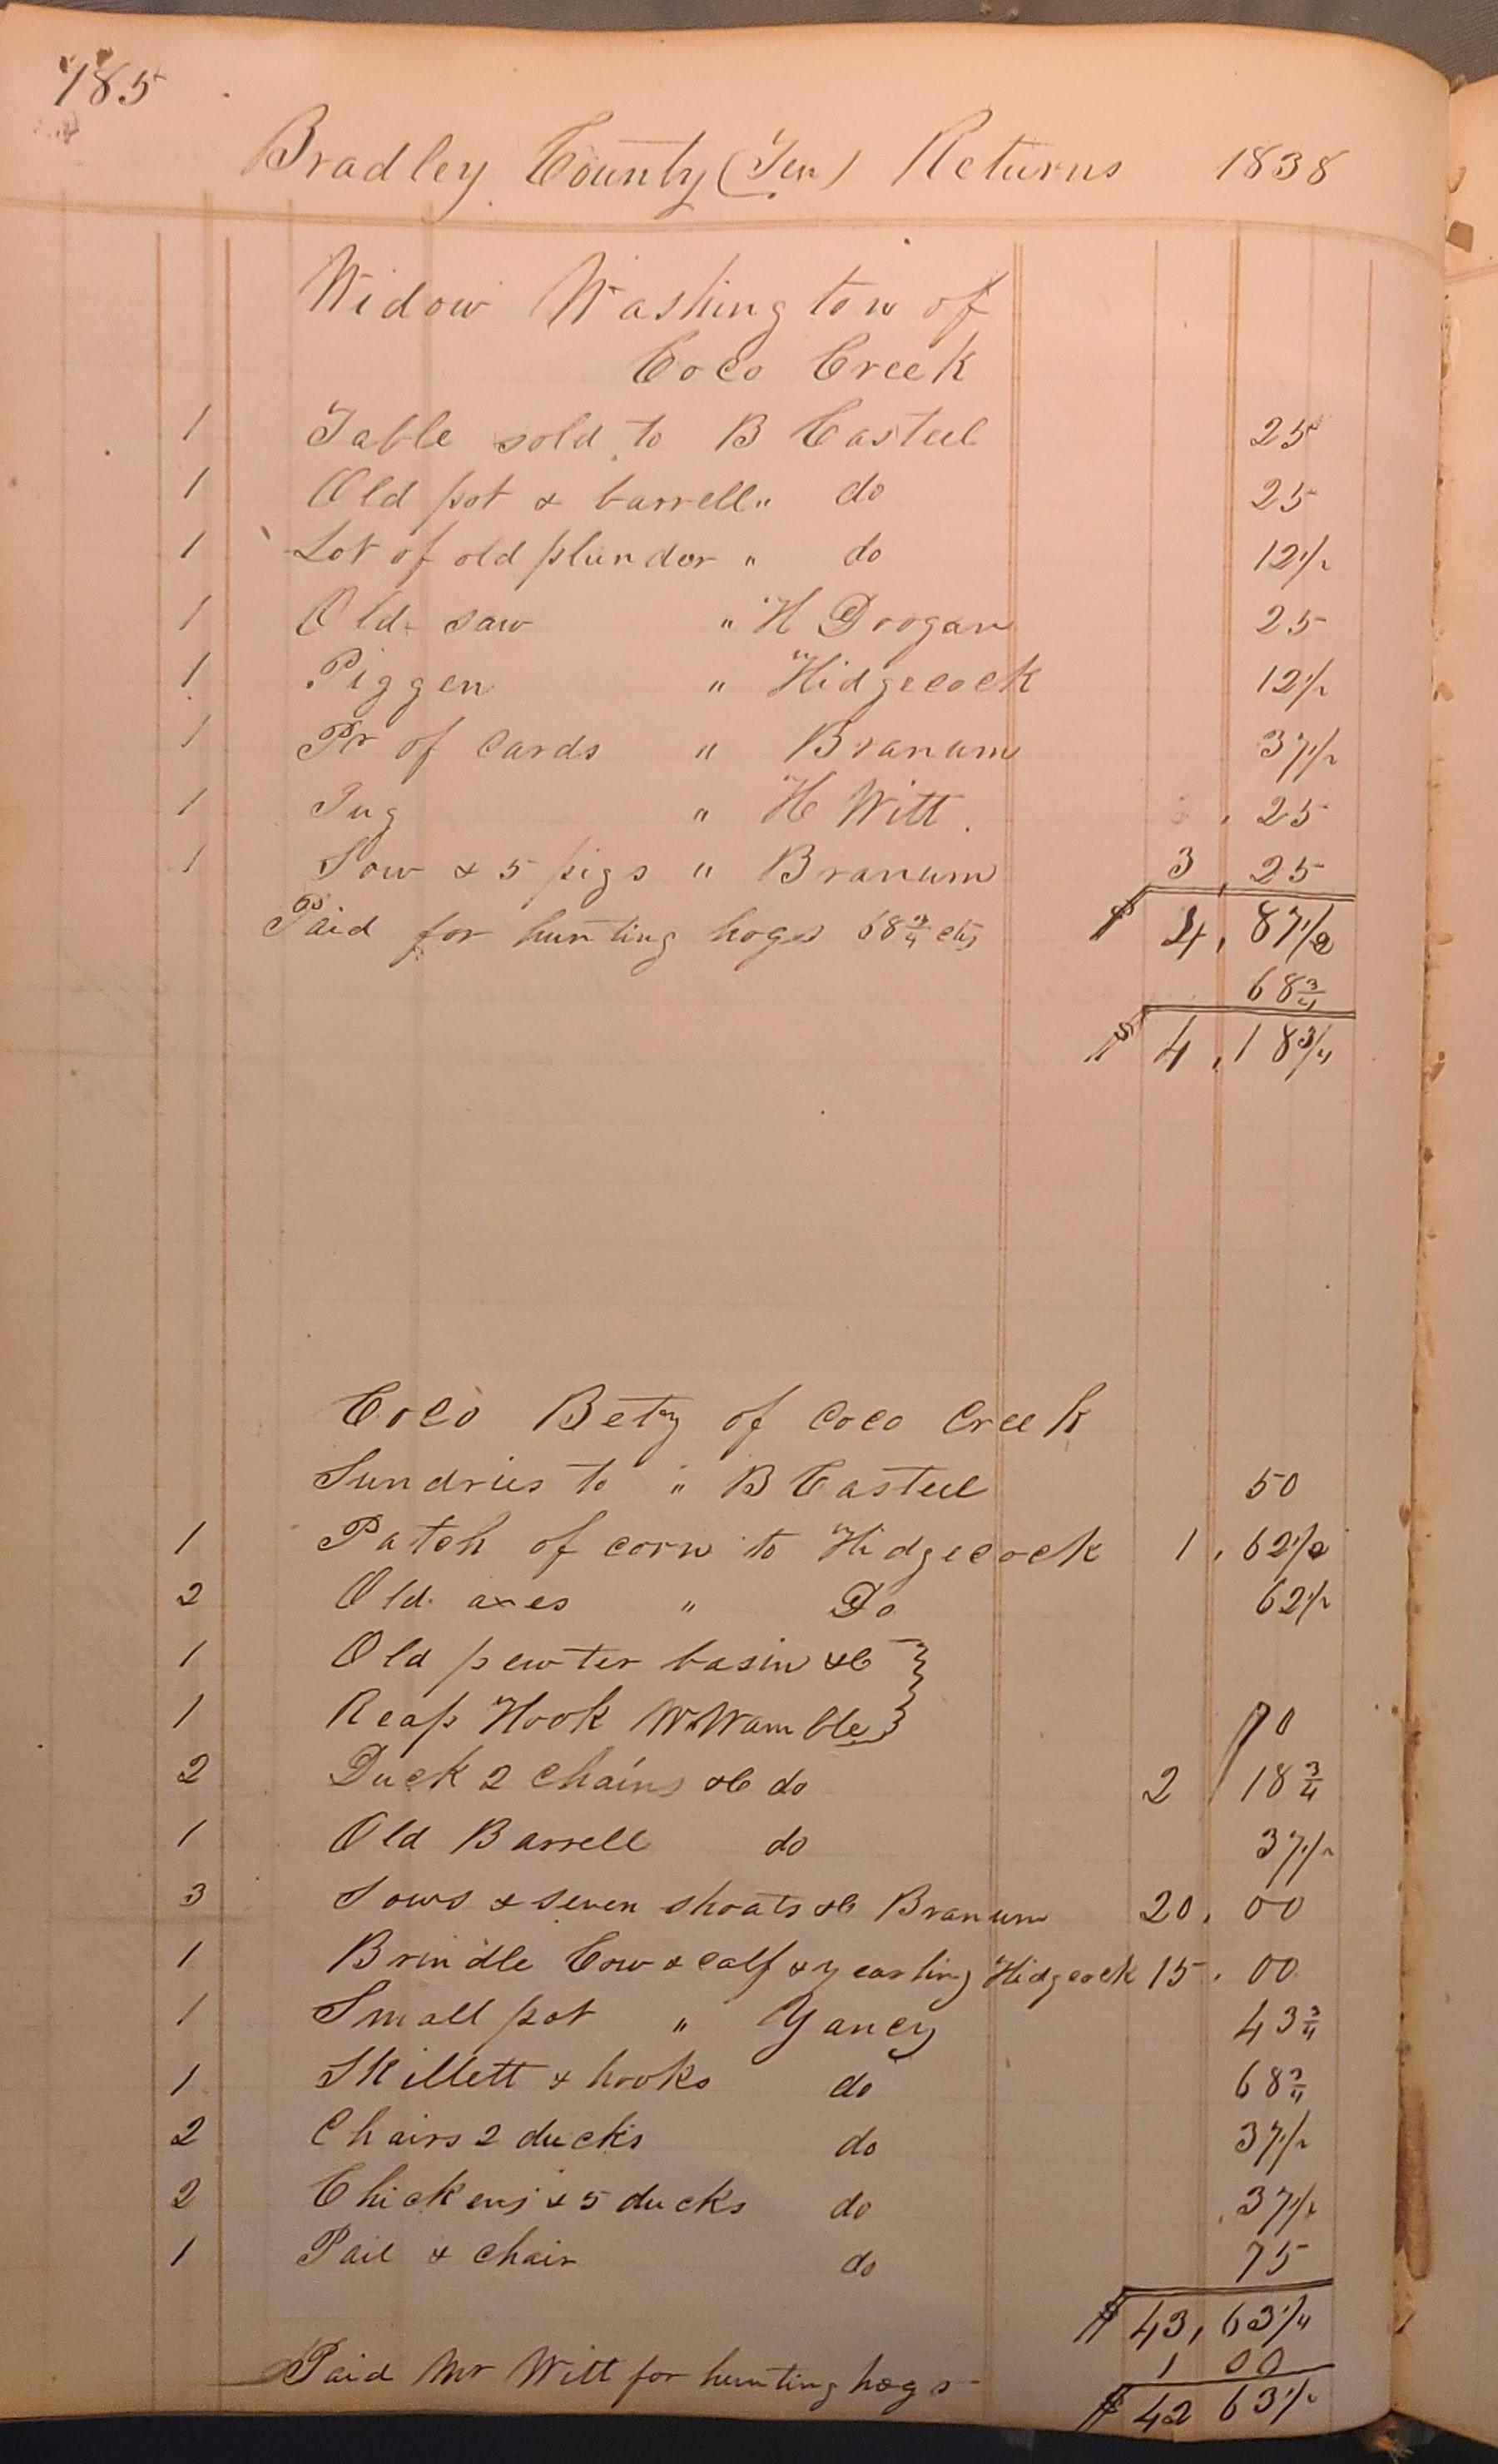 185
Bradley County (Ten) Returns 1838
Widow Washington of
Coco Creek
1 Table sold to B Casteel 25
1 Old pot & barrell " do 25
1 Lot of old plunder " do 12½
1 Old saw " H Doogan 25
1 Piggen " Hidgecock 12½
1 Pr of Cards " Branum 37½
1 Jug " H Witt . 25
1 Sow & 5 pigs " Branum 3,25
Paid for hunting hogs 68¾ cts $ 4,87½
68¾
$ 4,18¾
Coco Bety of Coco Creek
Sundries to " B Casteel 50
1 Patch of corn to Hidgecock 1,62½
2 Old axes " Do 62½
1 Old pewter basin &c
1 Reap Hook W Wamble 70
2 Duck 2 Chains &c do 2 18¾
1 Old Barrell do 37½
3 Sows & seven shoats &c Branum 20,00
1 Brindle Cow & calf & yearling Hidgcock 15.00
1 Small pot " Yancy 43¾
1 Skillett & hooks do 68¾
2 Chairs 2 ducks do 37½
2 Chickens & 5 ducks do 37½
1 Pail & chair do 75
$ 43,63¼
Paid Mr Witt for hunting hogs 1 00
$ 42 63½